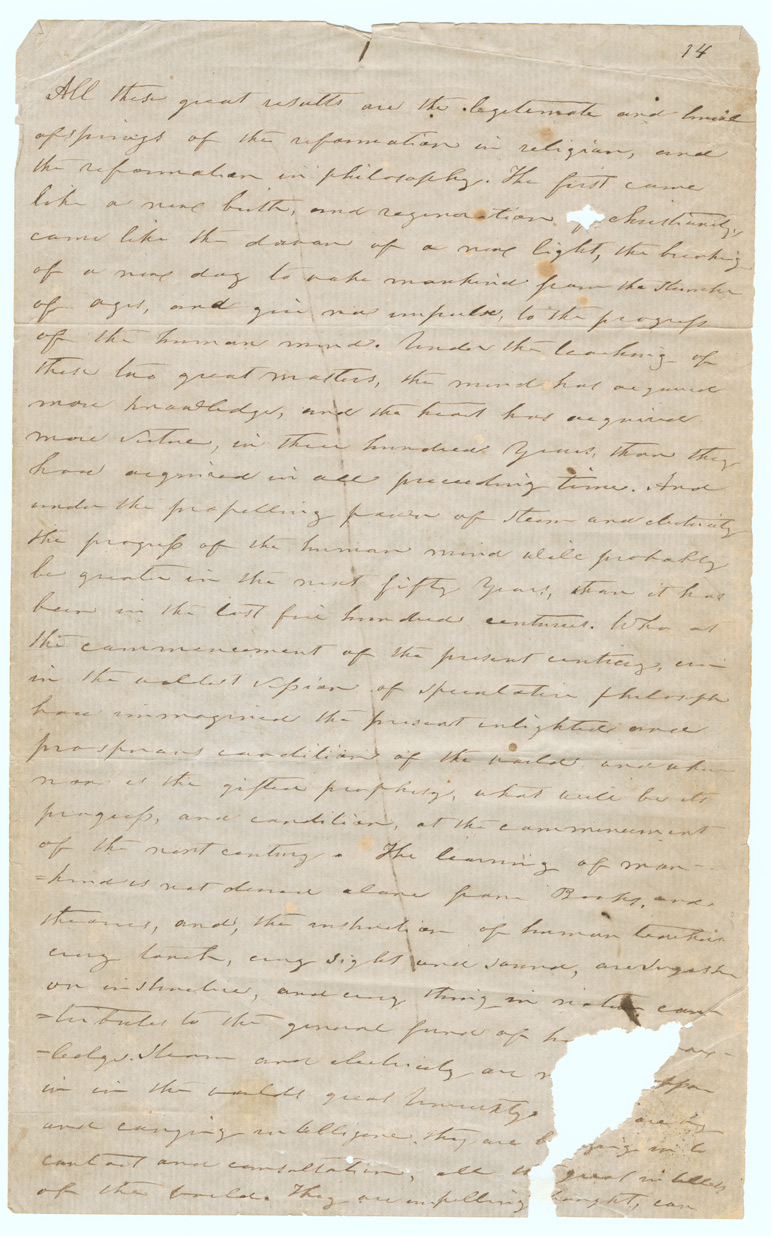 14
All these great results are the legitimate and
ofsprings of the reformation in religion, and
the reformation in philosophy. The first came
like a new birth, and regeneration of christianity,
came like the dawn of a new light, the breaking
of a new day to wake mankind from the slumber
of ages, and give new impulse, to the progress
of the human mind. Under the teaching of
these two great masters, the mind has acquired
more knowledge, and the heart has acquired
more virtue, in three hundred years, than they
had acquired in all preceeding time. And
under the propelling power of steam and electricity
the progress of the human mind will probably
be greater in the next fifty years, than it has
been in the last five hundred centuries. Who at
the commencement of the present century, even
in the wildest vission of speculative philosoph
have immagined the present enlighted and
prosporous condition of the world and who
now is the gifted prophesy, what will be its
progress, and condition, at the commencement
of the next century. The learning of man-
=kind is not derived alone from Books, and
theories, and, the instruction of human teachers
every touch, every sight and sound, are sugestive
or instructive, and every thing in nature con-
=tributes to the general fund of
=ledge. Steam and electricity are
in in the worlds great University
and carrying intelligence. they are in to
contact and consultation, all the great intellects
of the world. They are impelling thought, can